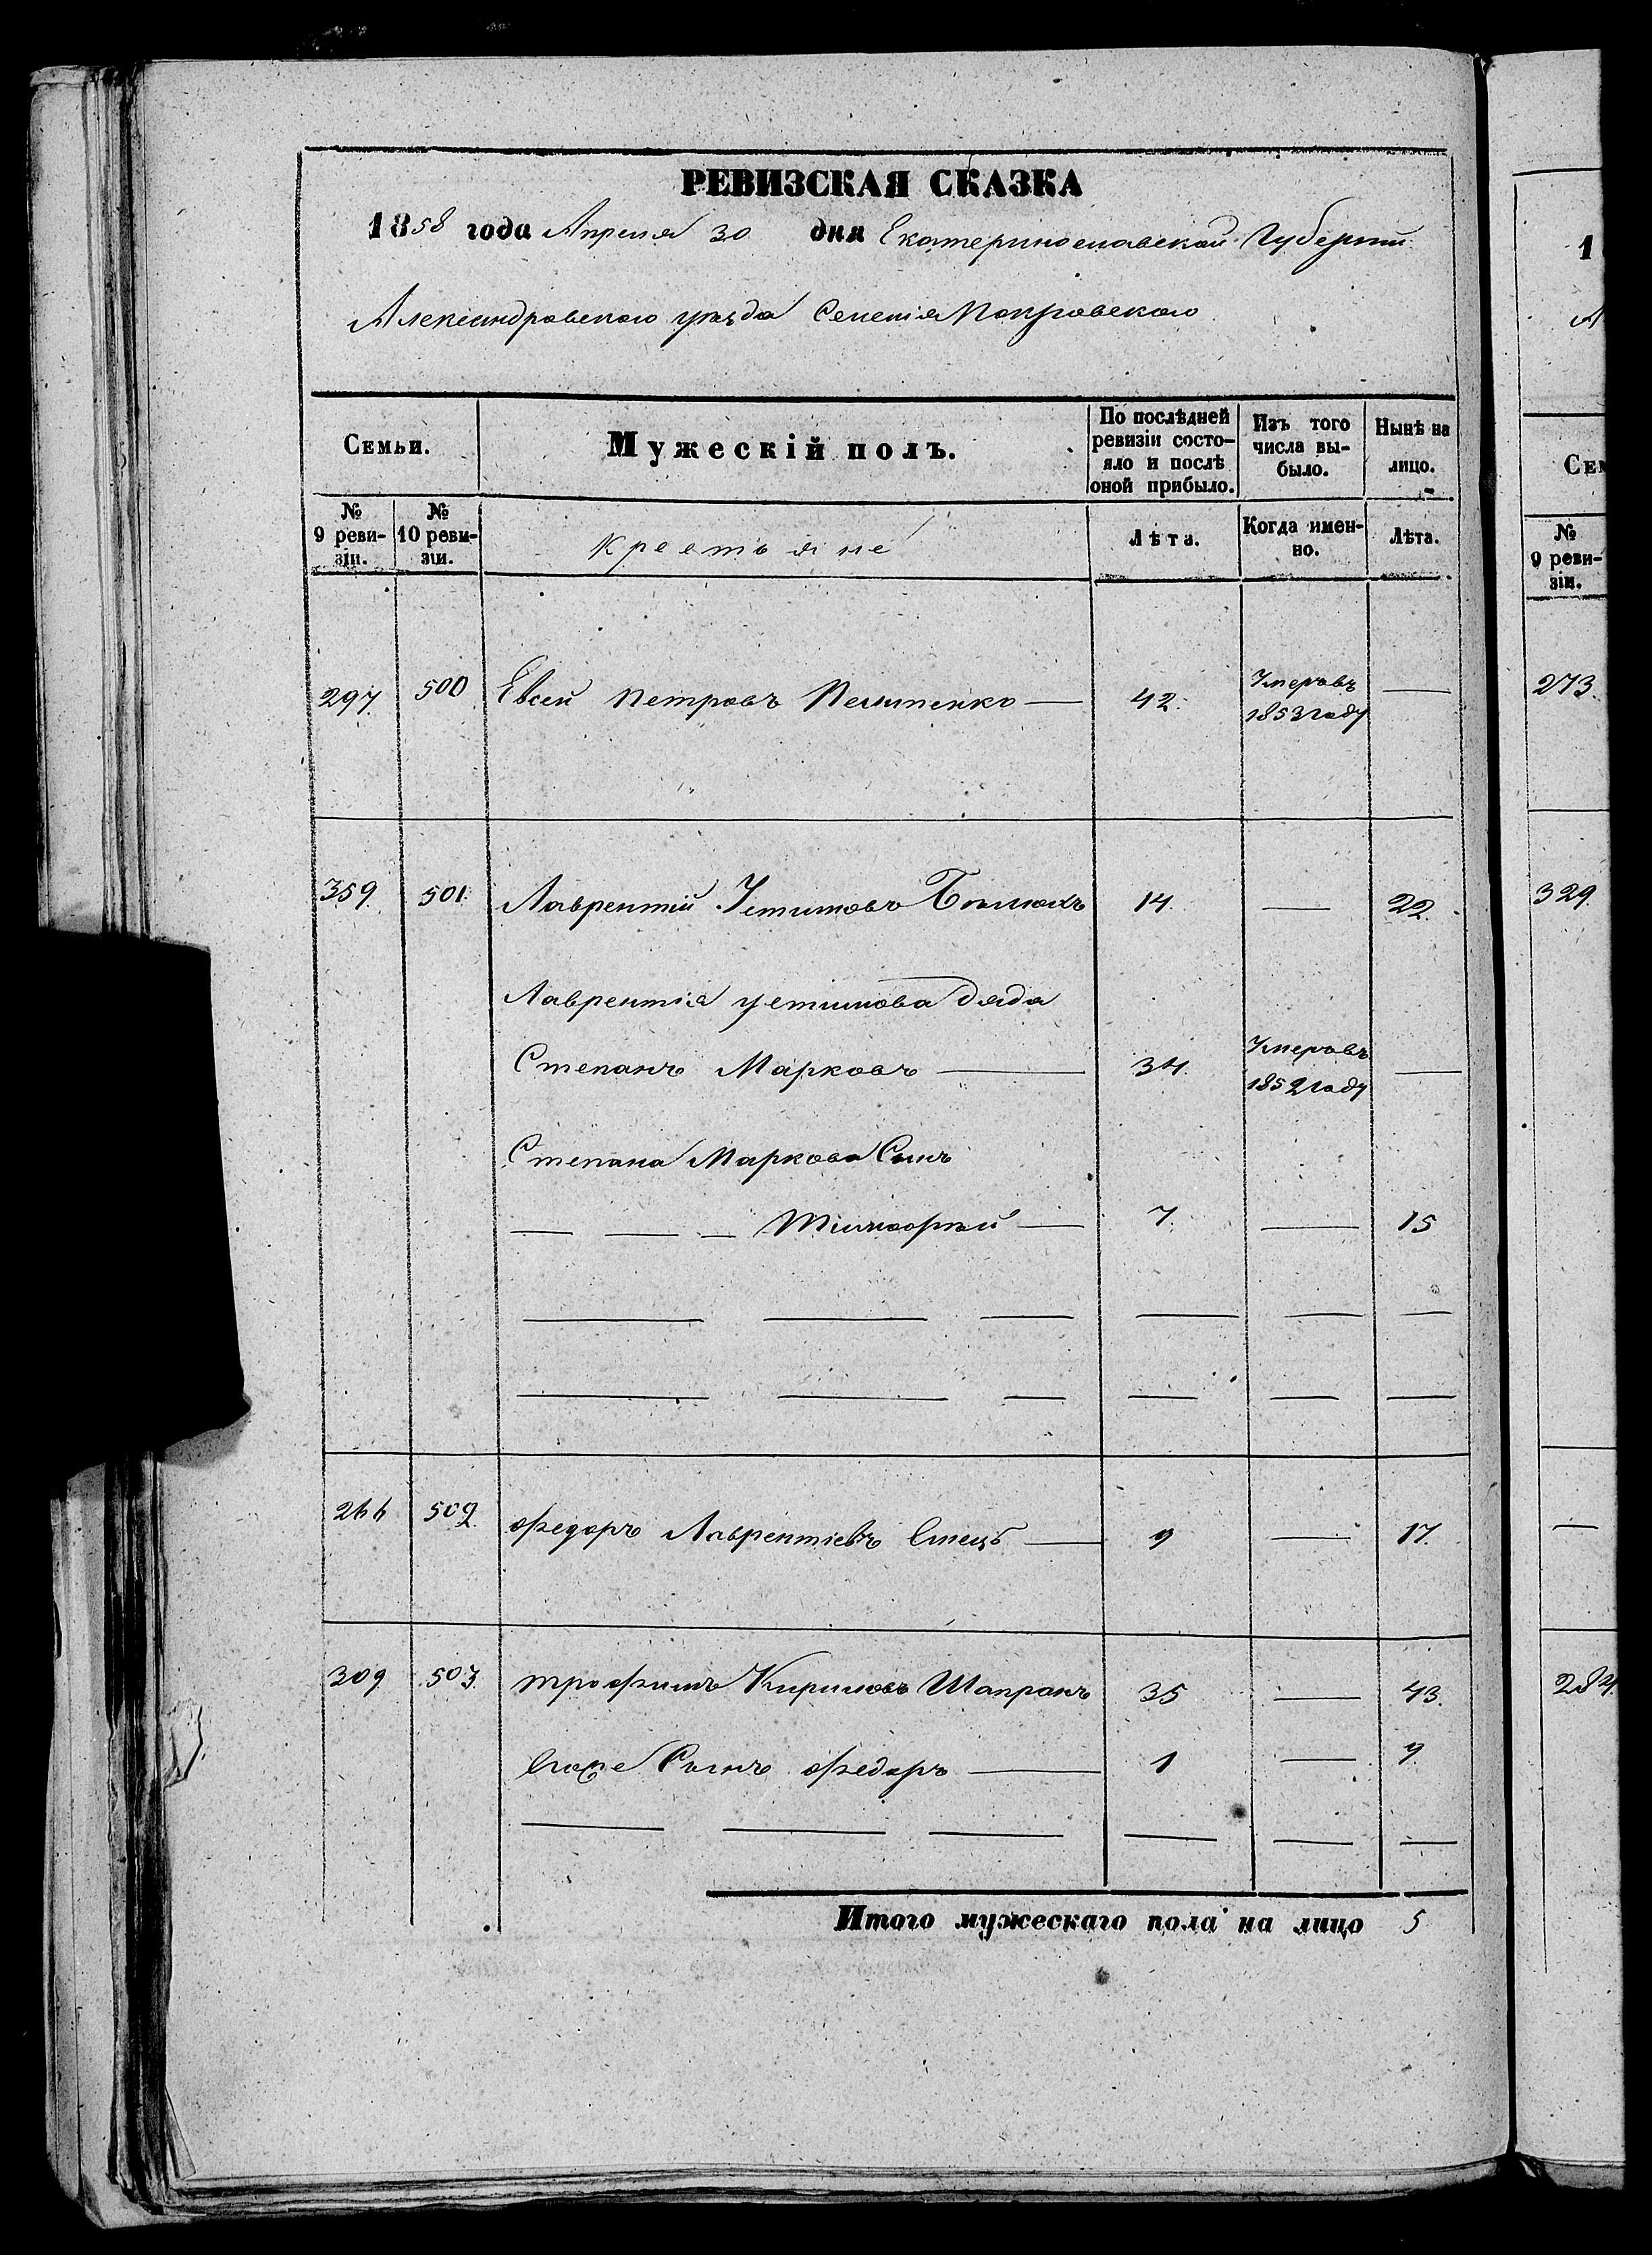 РЕВИЗСКАЯ СКАЗКА
1858 года Апреля 30 дня Екатеринославской Губернии
Александровского уезда Селения Покровского
Семьи.
Мужескій полъ.
По послѣдней ревизіи состо-
яло и послѣ
оной прибыло.
Изъ того
числа вы-
было.
Нынѣ на
лицо.
№
9 реви-
зіи.
№
10 реви-
зіи.
Крестьяне
Лѣта.
Когда имен-
но.
Лѣта.
297. 500 Евсей Петровъ — 42. Умеръ въ 1853 году —
359. 501. Лаврентій Устимовъ 14. — 22.
Лаврентія Устимова дядя
Степанъ Марковъ — 34. Умеръ въ 1852 году —
Степана Маркова Сынъ
— — — Тимофей — 7. — 15
266 502. Федоръ Лаврентіевъ — 9 — 17.
309 503. Трофимъ Кириловъ Шапранъ 35 — 43.
Сынъ Федоръ — 1 — 9
Итого мужескаго пола на лицо 5
1
А
Сем
№
9 реви-
зіи.
273.
329.
—
284.